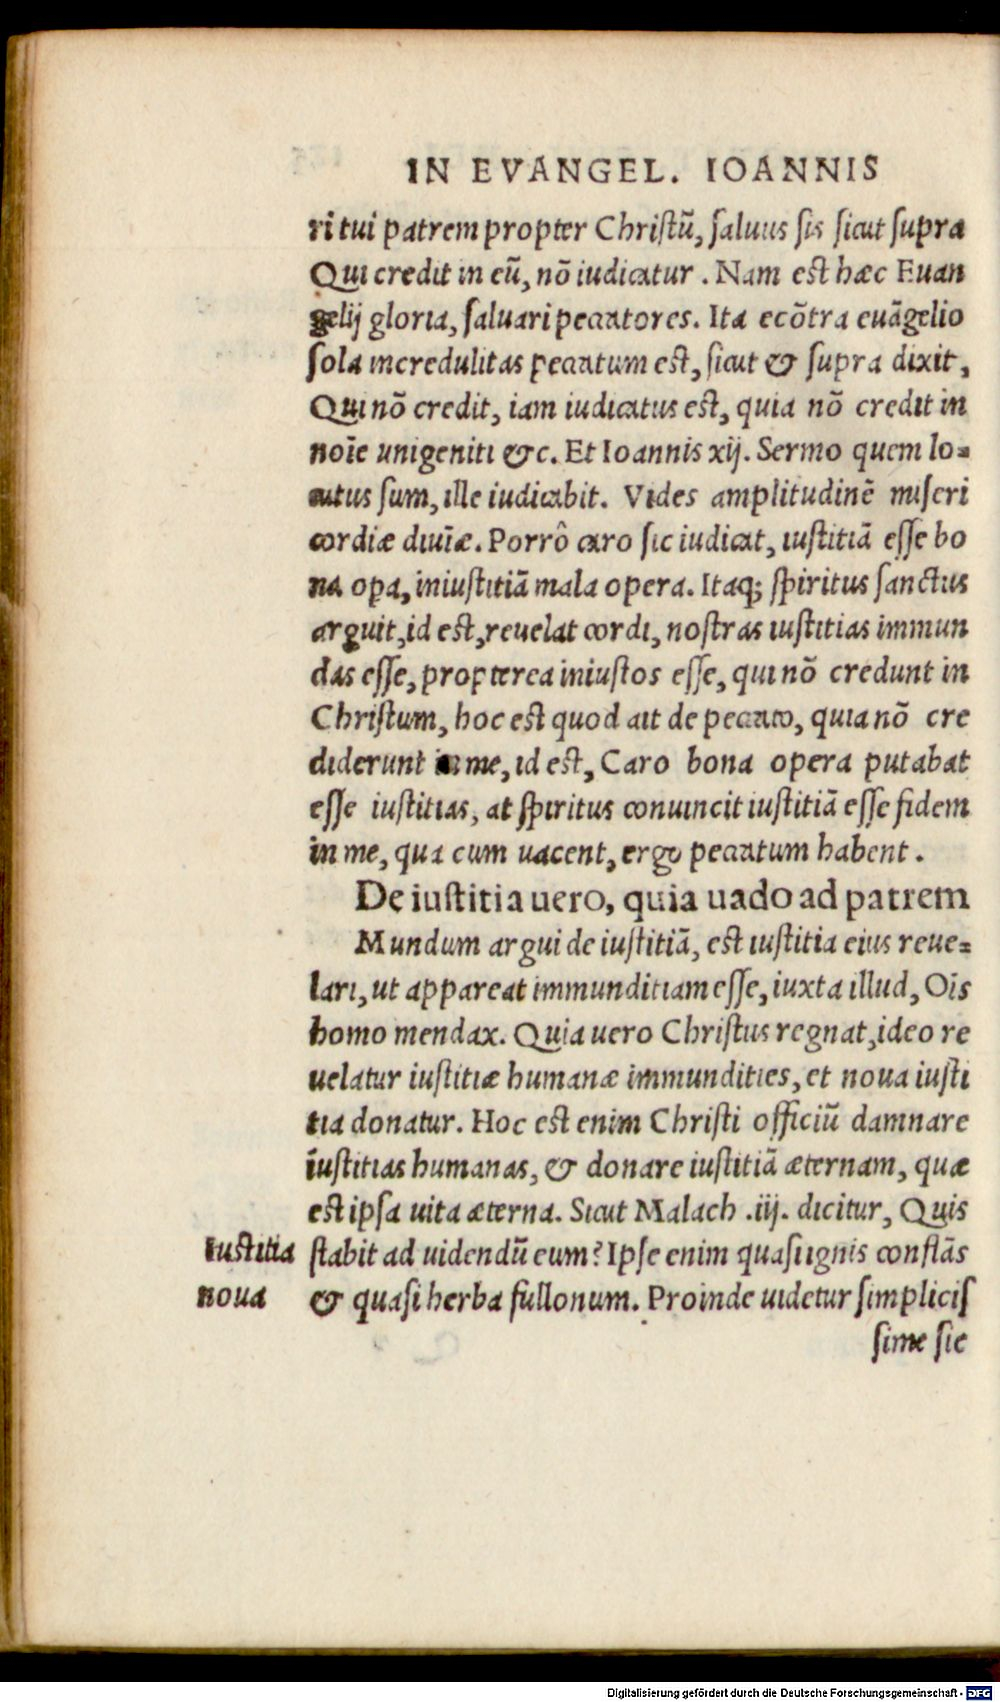 IN EVANGEL. IOANNIS
ri tui patrem propter Christũ, ſaluus ſis ſicut ſupra
Qui credit in eũ, nõ iudicatur. Nam est hæc Euan
gelij gloria, ſaluari peccatores. Ita ecõtra euãgelio
ſola incredulitas peccatum est, ſicut & ſupra dixit,
Qui nõ credit, iam iudicatus est, quia nõ credit in
noĩe unigeniti &c. Et Ioannis xij. Sermo quem lo=
cutus ſum, ille iudicabit. Vides amplitudinẽ miſeri
cordiæ diuĩæ. Porrô caro ſic iudicat, iuſtitiã eſſe bo
na opa, iniuſtitiã mala opera. Itaq; ſpiritus ſanctus
arguit, id est, reuelat cordi, noſtras iuſtitias immun
das eſſe, propterea iniuſtos eſſe, qui nõ credunt in
Chriſtum, hoc est quod ait de peccato, quia nõ cre
diderunt in me, id est, Caro bona opera putabat
eſſe iuſtitias, at ſpiritus conuincit iuſtitiã eſſe fidem
in me, qua cum uacent, ergo peccatum habent.
De iuſtitia uero, quia uado ad patrem
Mundum argui de iuſtitiã, est iuſtitia eius reue=
lari, ut appareat immunditiam eſſe, iuxta illud, Oĩs
homo mendax. Quia uero Chriſtus regnat, ideo re
uelatur iuſtitiæ humanæ immundities, et noua iuſti
tia donatur. Hoc est enim Chriſti officiũ damnare
iuſtitias humanas, & donare iuſtitiã æternam, quæ
est ipſa uita æterna. Sicut Malach .iij. dicitur, Quis
Iustitia ſtabit ad uidendũ eum? Ipſe enim quaſi ignis conflãs
noua & quaſi herba fullonum. Proinde uidetur ſimpliciſ
ſime ſic
Digitalisierung gefördert durch die Deutsche Forschungsgemeinschaft - DFG